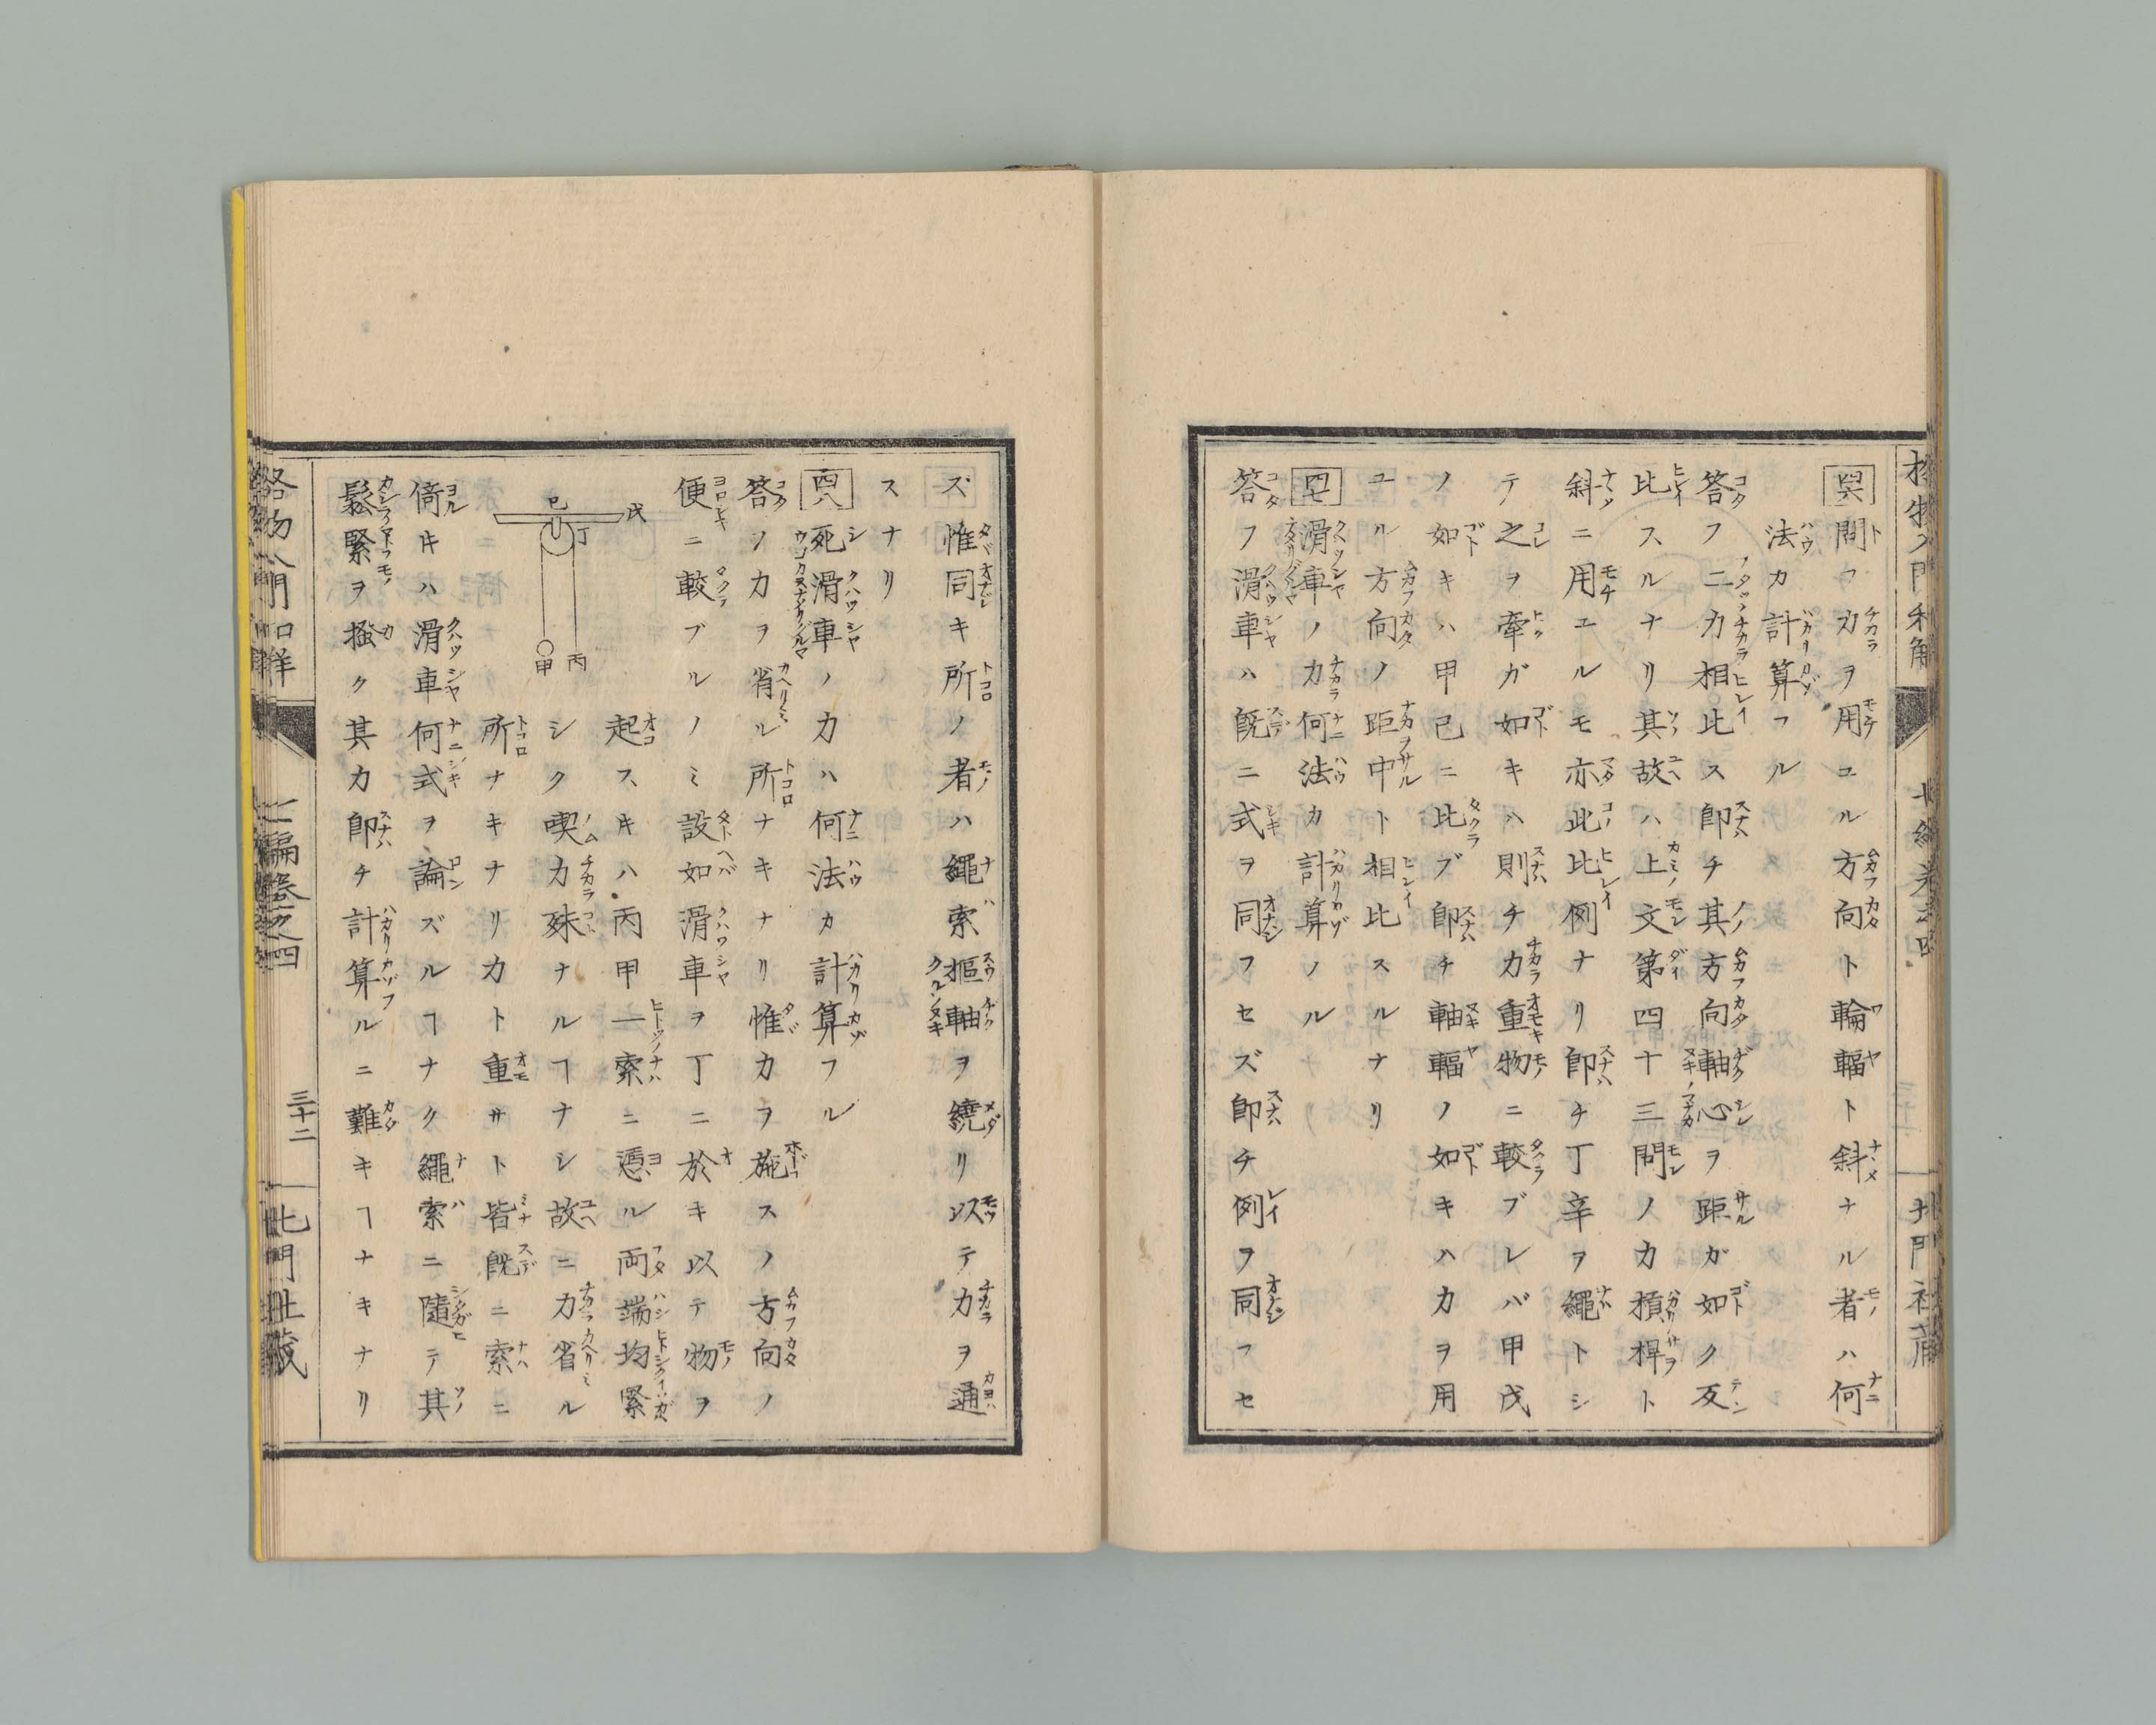 四六 問フ力ヲ用ユル方向ト輪輻ト斜ナル者ハ何
法カ計算フル
答フ二力相比ス即チ其方向軸心ヲ距ガ如ク反
比スルナリ其故ハ上文第四十三問ノ力槓桿ト
斜ニ用エルモ亦此比例ナリ即チ丁辛ヲ繩トシ
テ之ヲ牽ガ如キハ則チ力重物ニ較ブレバ甲戊
ノ如キハ甲己ニ比ブ即チ軸輻ノ如キハ力ヲ用
ユル方向ノ距中ト相比スルナリ
四七 滑車ノ力何法カ計算ノル
答フ滑車ハ既ニ式ヲ同フセズ即チ例ヲ同フセ
ズ惟同キ所ノ者ハ繩索摳軸ヲ繞リ以テ力ヲ通
スナリ
四八 死滑車ノ力ハ何法カ計算フル
答ノ力ヲ省ル所ナキナリ惟力ヲ施スノ方向ノ
便ニ較ブルノミ設如滑車ヲ丁ニ於キ以テ物ヲ
起スキハ丙甲一索ニ憑ル両端均緊
シク喫力殊ナルヿナシ故ニ力省ル
所ナキナリ力ト重サト皆既ニ索ニ
戊
己
丁
丙
甲
倚キハ滑車何式ヲ論ズルヿナク繩索ニ隨テ其
鬆緊ヲ搔ク其力即チ計算ルニ難キヿナキナリ
二編卷之四
三十二
北門社藏